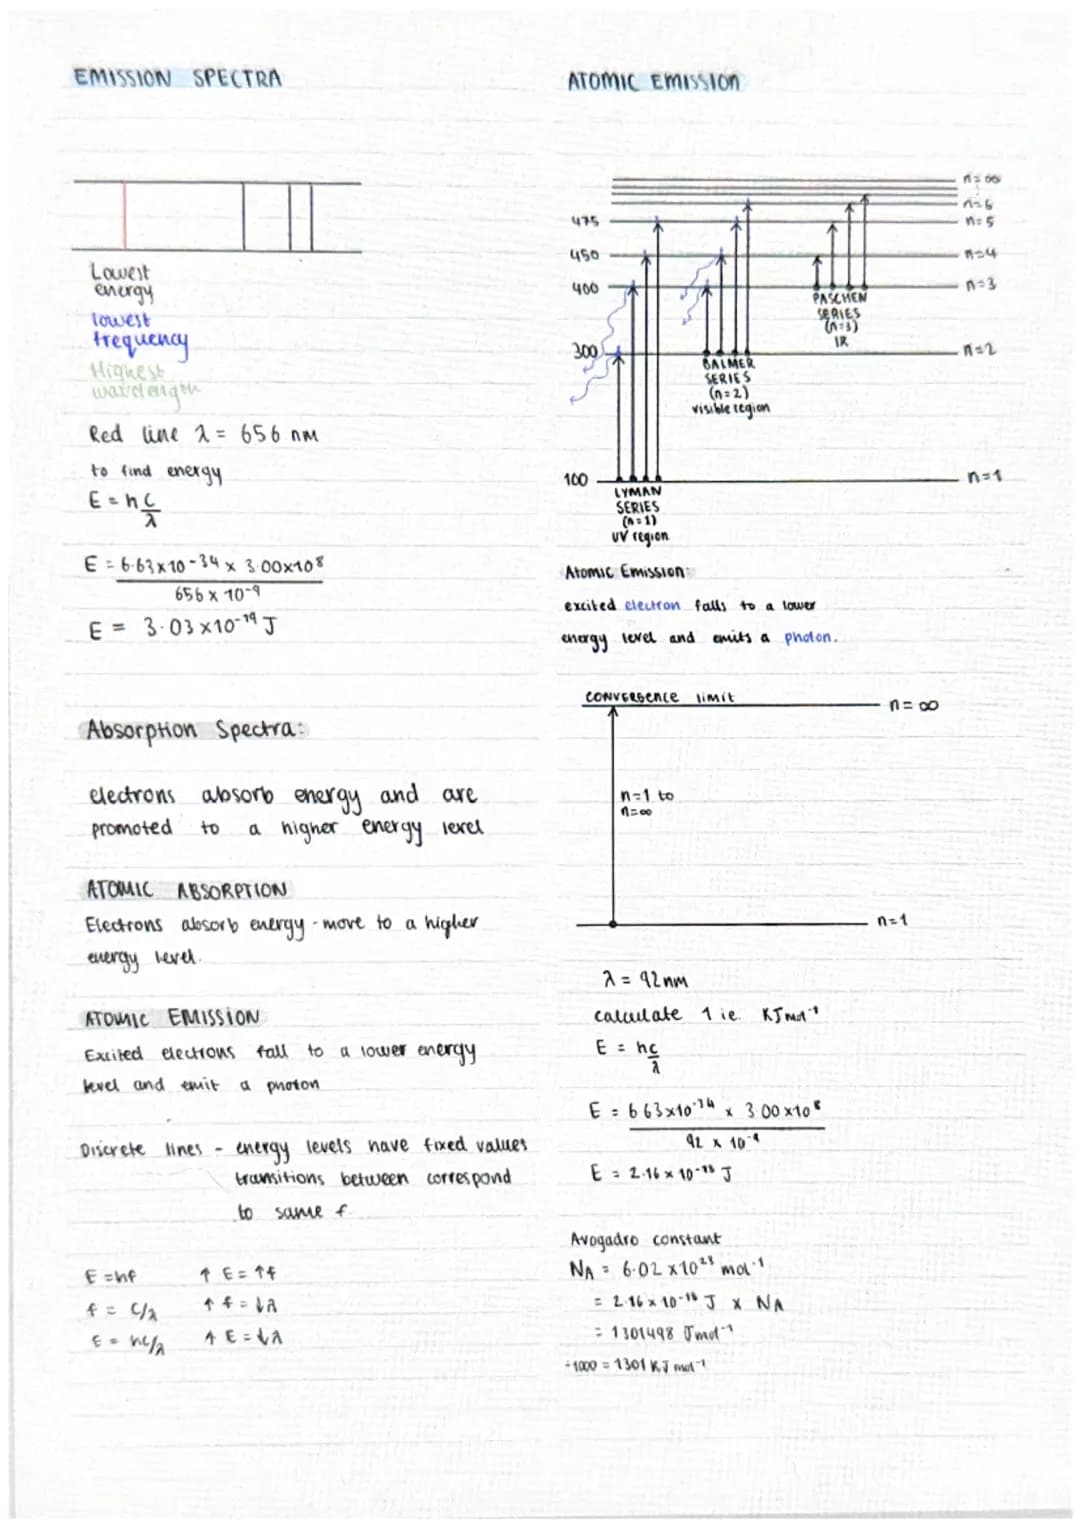 EMISSION SPECTRA
Lowest
energy
lowest
frequency
Highest
wavelength
Red line λ = 656 nm
to find energy
E = h c/λ
E = 6.63 x 10-34 x 3.00x10⁸
656 x 10-9
E = 3.03 x10-19 J
Absorption Spectra:
electrons absorb energy and are
promoted to a higher energy level
ATOMIC ABSORPTION
Electrons absorb energy - move to a higher
energy level.
ATOMIC EMISSION
Excited electrons fall to a lower energy
level and emit a photon
Discrete lines - energy levels have fixed values
transitions between correspond
to same f.
E = hf ↑ E = ↑f
f = c/λ ↑ f = ↓λ
E = hc/λ ↑ E = ↓λ
ATOMIC EMISSION
n = ∞
n=6
475 n=5
450 n=4
400 n=3
PASCHEN
SERIES
(n=3)
IR
300 n=2
BALMER
SERIES
(n=2)
visible region
100 n=1
LYMAN
SERIES
(n=1)
UV region
Atomic Emission:
excited electron falls to a lower
energy level and emits a photon.
CONVERGENCE limit n = ∞
n=1 to
n=∞
n=1
λ = 92nm
calculate 1 ie. KJmol⁻¹
E = hc/λ
E = 6.63x10⁻³⁴ x 3.00 x10⁸
92 x 10⁻⁹
E = 2.16 x 10⁻¹⁸ J
Avogadro constant
NA = 6.02 x10²³ mol⁻¹
= 2.16 x 10⁻¹⁸ J x NA
= 1301498 Jmol⁻¹
÷1000 = 1301 KJ mol⁻¹